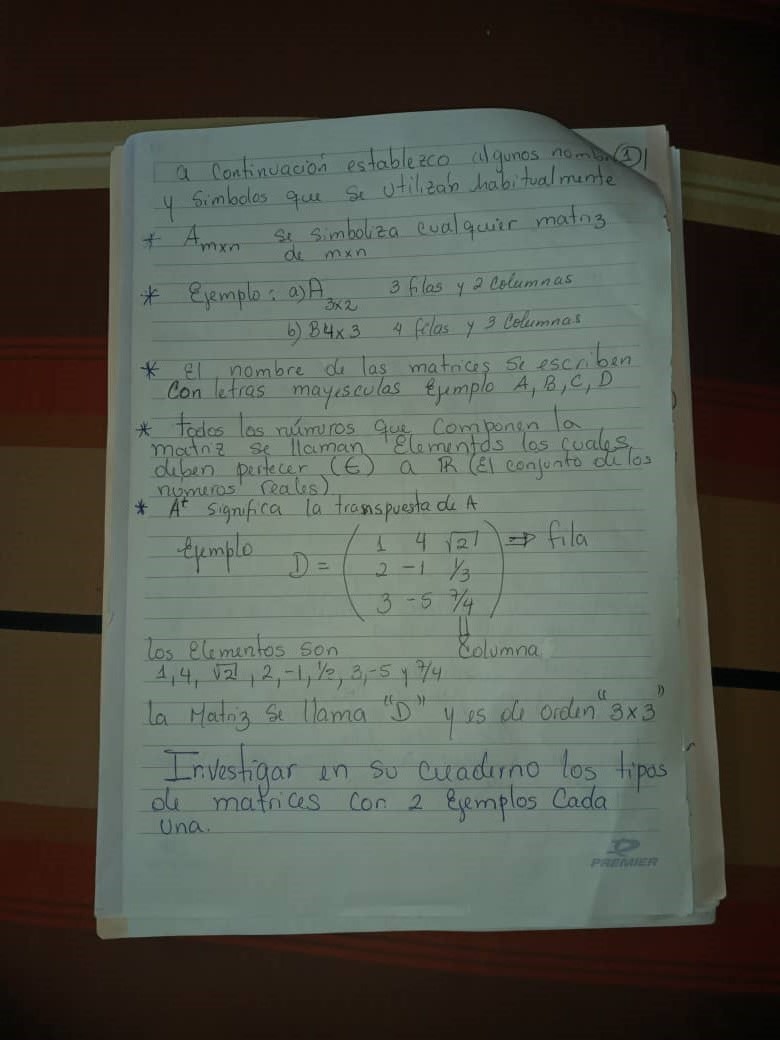 a continuación establezco algunos nombre (1)
y simbolos que se utilizan habitualmente
* Amxn se simboliza cualquier matriz
de mxn
* Ejemplo: a) A3x2 3 filas y 2 columnas
b) B4x3 4 filas y 3 columnas
* El nombre de las matrices se escriben
con letras mayesculas Ejemplo A, B, C, D
* todos los númuros que componen la
matriz se llaman Elementos los cuales
deben pertecer (∈) a ℝ (El conjunto de los
números reales)
* Aᵗ significa la transpuesta de A
Ejemplo D = ( 1 4 √2 ⇒ fila
2 -1 1/3
3 -5 7/4 )
los elementos son columna
1, 4, √2, 2, -1, 1/2, 3, -5 y 7/4
la Matriz se llama "D" y es de orden "3x3"
Investigar en su cuaderno los tipos
de matrices con 2 Ejemplos Cada
una.
PREMIER